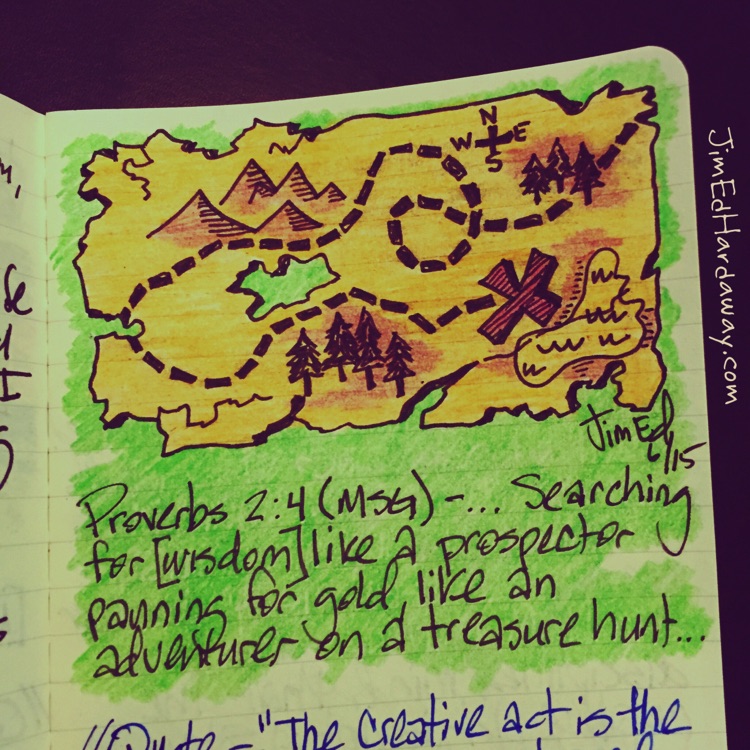 N
W E
S
JimEdHardaway.com
JimEd
6/15
Proverbs 2:4 (MSG) - ... Searching
for [wisdom] like a prospector
panning for gold like an
adventurer on a treasure hunt...
"The creative act is the